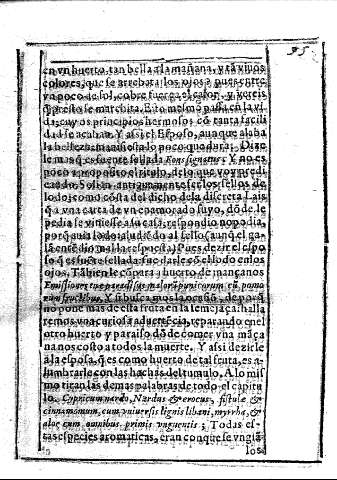 95
en vn huerto, tan bella a la mañana, y tā viuos
colores, que se arrebata los ojos: pues entre
vn poco de sol, cobre fuerça el calor, y vereis
q̄ presto se marchita. Esto mesmo passa en la vi
da, cuyos principios hermosos cō tanta facili
dad se acaban. Y assi el Esposo, aunque alaba
la belleza, manifiesta lo poco que dura: Dize
le mas q̄ es fuente sellada Fons signatus. Y no es
poco a proposito el titulo, de lo que voy predi
cando. Solian antiguamente ser los sellos de
lodo, como cōsta del dicho de la discreta Lais
q̄ a vna carta de vn enamorado suyo, dō de le
pedia se viniesse a su casa, respondio no podia,
porq̄ auia lodo, aludiēdo al sello (aunq̄ el ga
lā entēdio mal la respuesta) Pues dezir el espo
so q̄ es fuēte sellada: fue darles cō el lodo en los
ojos. Tābien le cōpara a huerto de mançanos
Emissiones tuæ paradisus malorū punicorum cū pomo
rum fructibus, Y si buscamos la ocasiō, de porq̄
no pone mas de esta fruta en la semejāça: halla
remos vna curiosa aduertēcia, reparando en el
otro huerto y paraiso dō de comer vna māça
na nos costo a todos la muerte. Y assi dezirle
a la esposa, q̄ es como huerto de tal fruta, es a-
lumbrarle con las hachas del tumulo. A lo mis
mo tiran las demas palabras de todo el capitu
lo. Cypri cum nardo, Nardus & crocus, fistula &
cinnamomum, cum vniuersis lignis libani, myrrha, &
aloe cum omnibus primis vnguentis; Todas es-
tas especies aromaticas, eran con que se vngiā
los